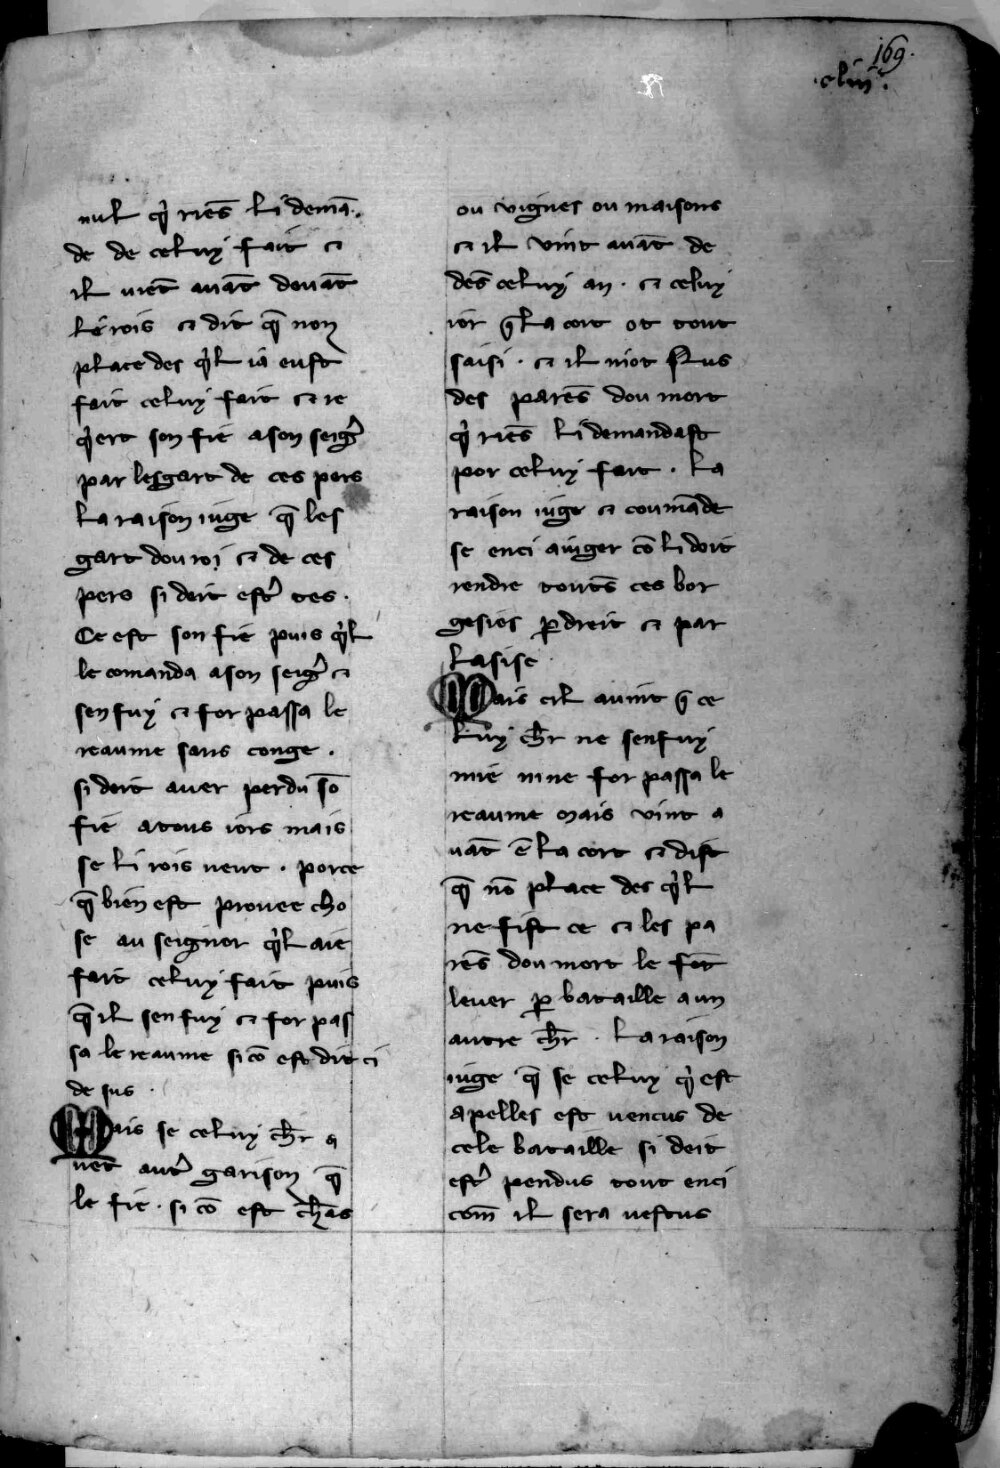 169.
.clııȷ.
nul q̇ riēs li demā.
de de celuy fait ⁊
il uiēt auāt douāt
li rois ⁊ dit q̄ non
place des q̇l ia eust
fait celuy fait ⁊ re
q̇ert son fie a son seigr̄
par lesgart de ces pers
la raison iuge q̄ les
gart dou roi ⁊ de ces
pers si doit estr̄ tes.
Ce est son fie puis q̇l
le comanda a son seigr̄ ⁊
sen fuy ⁊ for passa le
reaume sans conge.
si doit auer perdu sō
fie a tous iors mais
se li rois ueut. porce
q̄ bien est prouee cho
se au seignor q̇l aie
fait celuy fait puis
q̄ il sen fuy ⁊ for pas
sa le reaume si cō est dit ci
de sus.
Mais se celuy ch̄r a
uet autr̄ garison q̄
le fie. si cō est ch̄as
ou vignes ou maisons
⁊ il vint auāt de
dēs celuy an. ⁊ celuy
ior q̄ la cort ot tout
saisi. ⁊ il niot plus
des parēs dou mort
q̇ riēs li demandast
por celuy fait. la
raison iuge ⁊ coumāde
se enci a iuger cō li doit
rendre toutes ces bor
gesies p̱ dreit ⁊ par
lasise
Mais cil auint q̄ ce
luy ch̄r ne senfuy
mie nine for passa le
reaume mais vint a
uāt ē la cort ⁊ dist
q̄ nō place des q̇l
ne fist ce ⁊ les pa
rēs dou mort le font
leuer p̱ bataille a un
autre ch̄r. la raison
iuge q̄ se celuy q̇ est
apelles est uencus de
cele bataille si deit
estr̄ pendus tout enci
com̄ il sera uestus